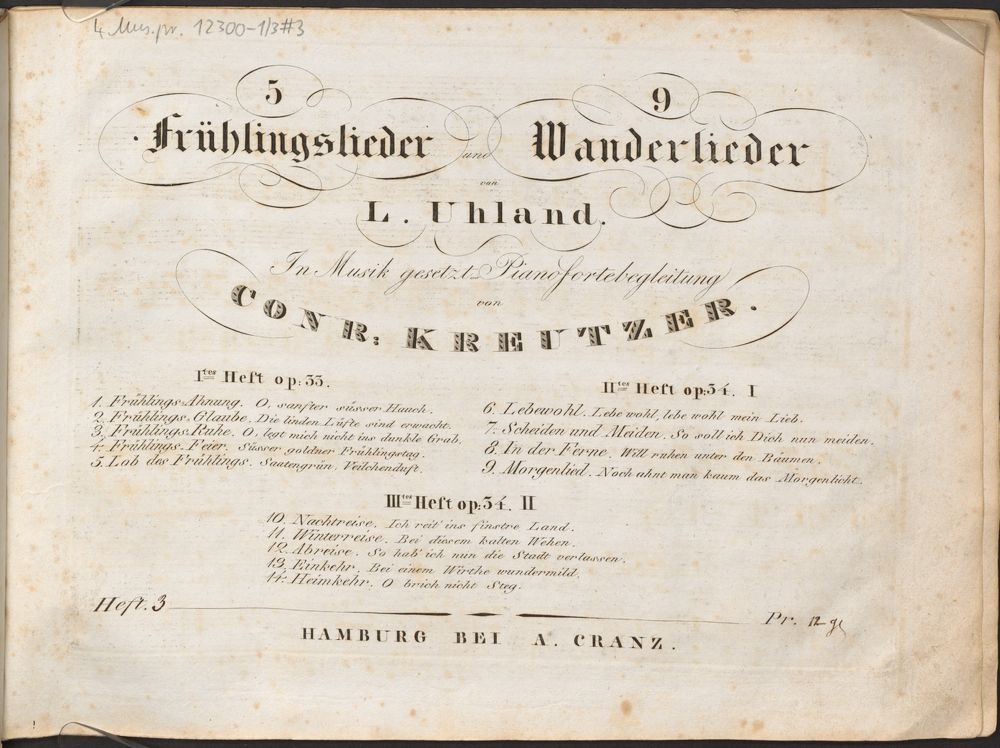 4 Mus.pr. 12300-1/3#3
5 9
Frühlingslieder und Wanderlieder
von
L. Uhland.
In Musik gesetzt Pianofortebegleitung
von
CONR: KREUTZER.
Ites Heft op: 33.
1. Frühlings-Ahnung. O, sanfter süsser Hauch.
2. Frühlings-Glaube. Die linden Lüfte sind erwacht.
3. Frühlings-Ruhe. O, legt mich nicht ins dunkle Grab.
4. Frühlings-Feier. Süsser goldner Frühlingstag.
5. Lob des Frühlings. Saatengrün, Veilchenduft.
IItes Heft op: 34. I
6. Lebewohl. Lebe wohl, lebe wohl mein Lieb.
7. Scheiden und Meiden. So soll ich Dich nun meiden.
8. In der Ferne. Will ruhen unter den Bäumen.
9. Morgenlied. Noch ahnt man kaum das Morgenlicht.
IIItes Heft op: 34. II
10. Nachtreise. Ich reit' ins finstre Land.
11. Winterreise. Bei diesem kalten Wehen.
12. Abreise. So hab' ich nun die Stadt verlassen.
13. Einkehr. Bei einem Wirthe wundermild.
14. Heimkehr. O brich nicht Steg.
Heft. 3 Pr. 12 gr
HAMBURG BEI A. CRANZ.